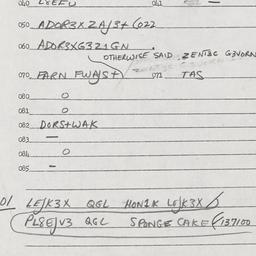 040 L8EFU 041
050 ADOR3X ZAJ3+ (022
060 ADOR3XG3Z1GN
OTHERWISE SAID ZENTBC G3VORN
070 FARN FWAJS+) 071 TAS
080 O
081 O
082 DORS+WAK
083 —
084 O
085 -
01/ LEJK3X QGL HON1K LEJK3X
PL8EJV3 QGL SPONGE CAKE (137100